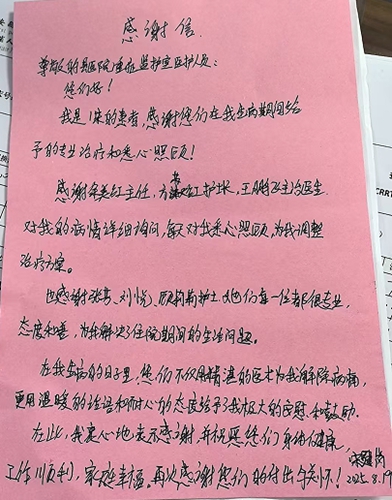 感谢信
尊敬的县医院重症监护室医护人员：
您们好！
我是1床的患者，感谢您们在我生病期间给
予的专业治疗和悉心照顾！
感谢 主任， 护长，王 主治医生
对我的病情详细询问， 对我悉心照顾，为我调整
治疗方案。
也感谢 、刘悦、 护士，她们每一位都很专业，
态度和善，为我解决了住院期间的生活问题。
在我生病的日子里，您们不仅用精湛的医术为我解除病痛，
更用温暖的话语和耐心的态度给予我极大的安慰和鼓励。
在此，我衷心地表示感谢，并祝愿您们身体健康，
工作顺利，家庭幸福，再次感谢您们的付出与关怀！
2025.8.19
CRRT